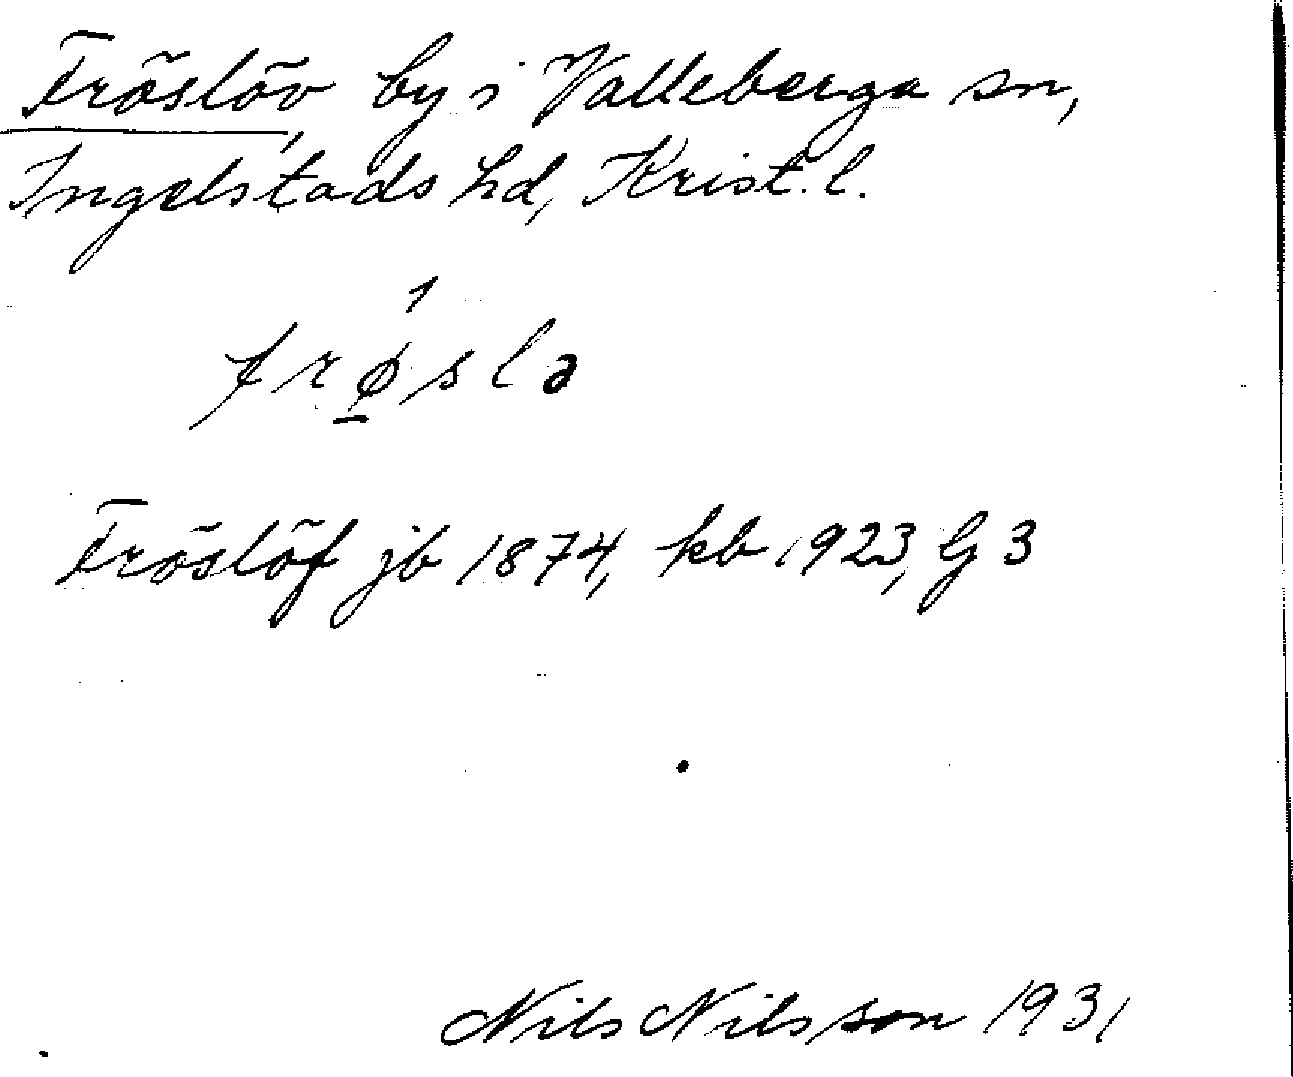 Fröslöv, by i Valleberga sn,
Ingelstads hd, Krist. l.
1
frø̱slə
Fröslöf jb 1874, kb 1923, G 3
Nils Nilsson 1931